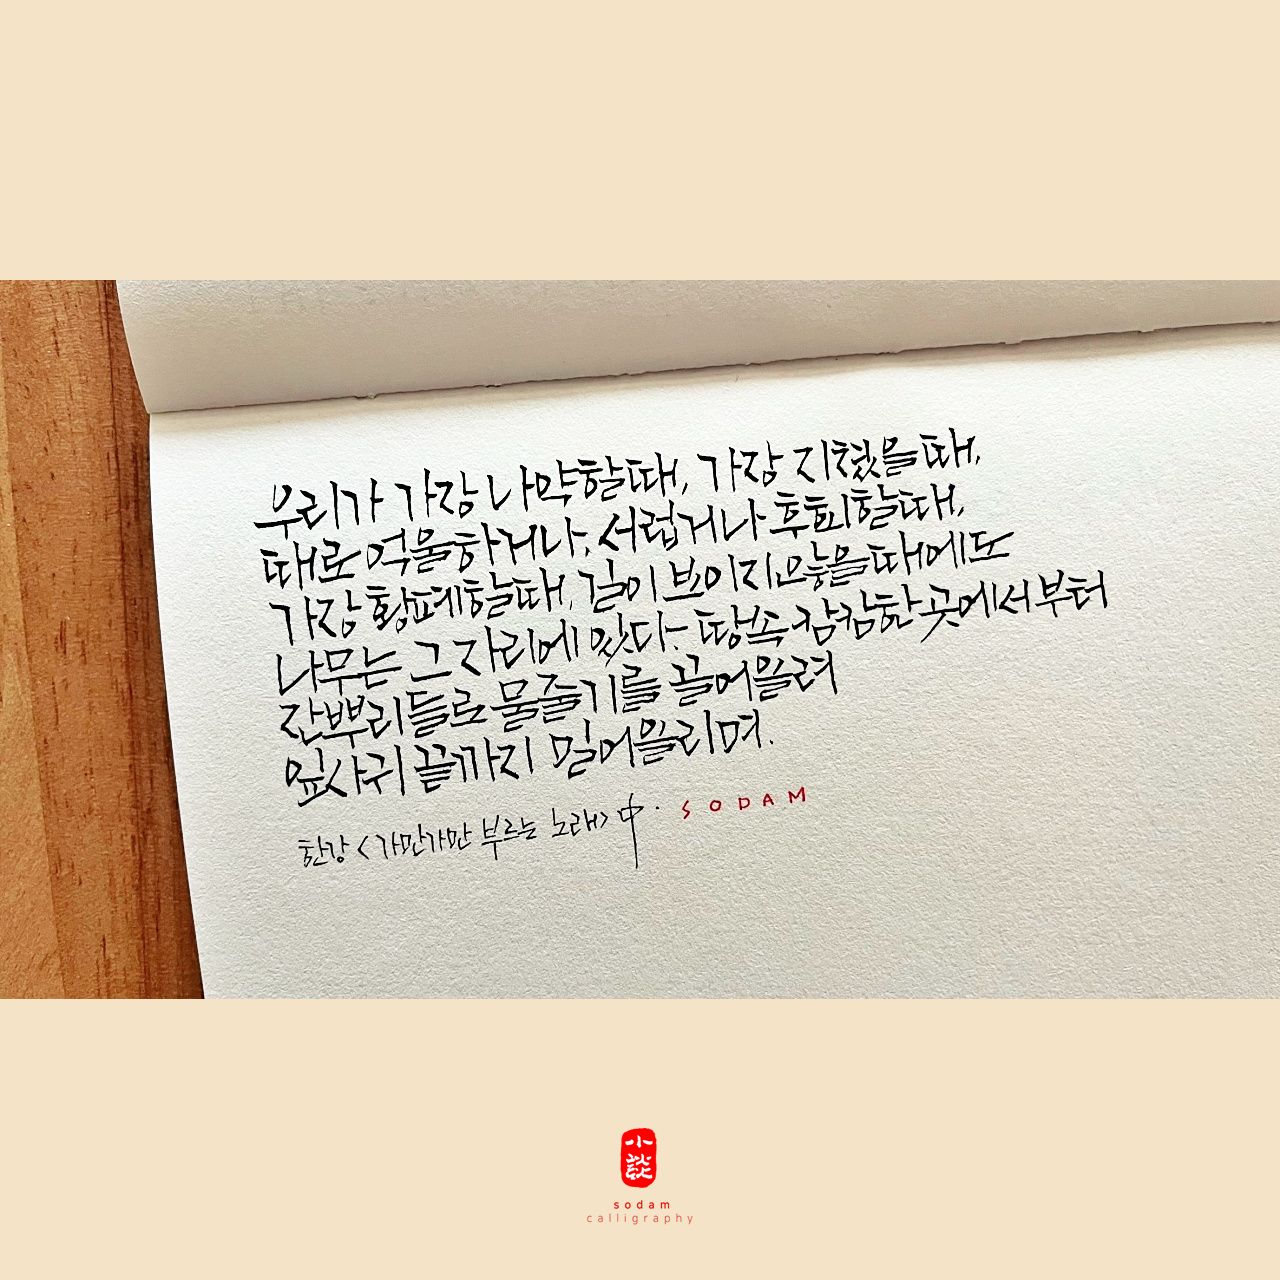 우리가 가장 나약할때, 가장 지쳤을때,
때로 억울하거나, 서럽거나 후회할때,
가장 황폐할때, 길이 보이지않을때에도
나무는 그 자리에 있다. 땅속 캄캄한 곳에서부터
잔뿌리들로 물줄기를 끌어올려
잎사귀 끝까지 밀어올리며.
한강 <가만가만 부르는 노래> 中. SODAM
小談
sodam
calligraphy